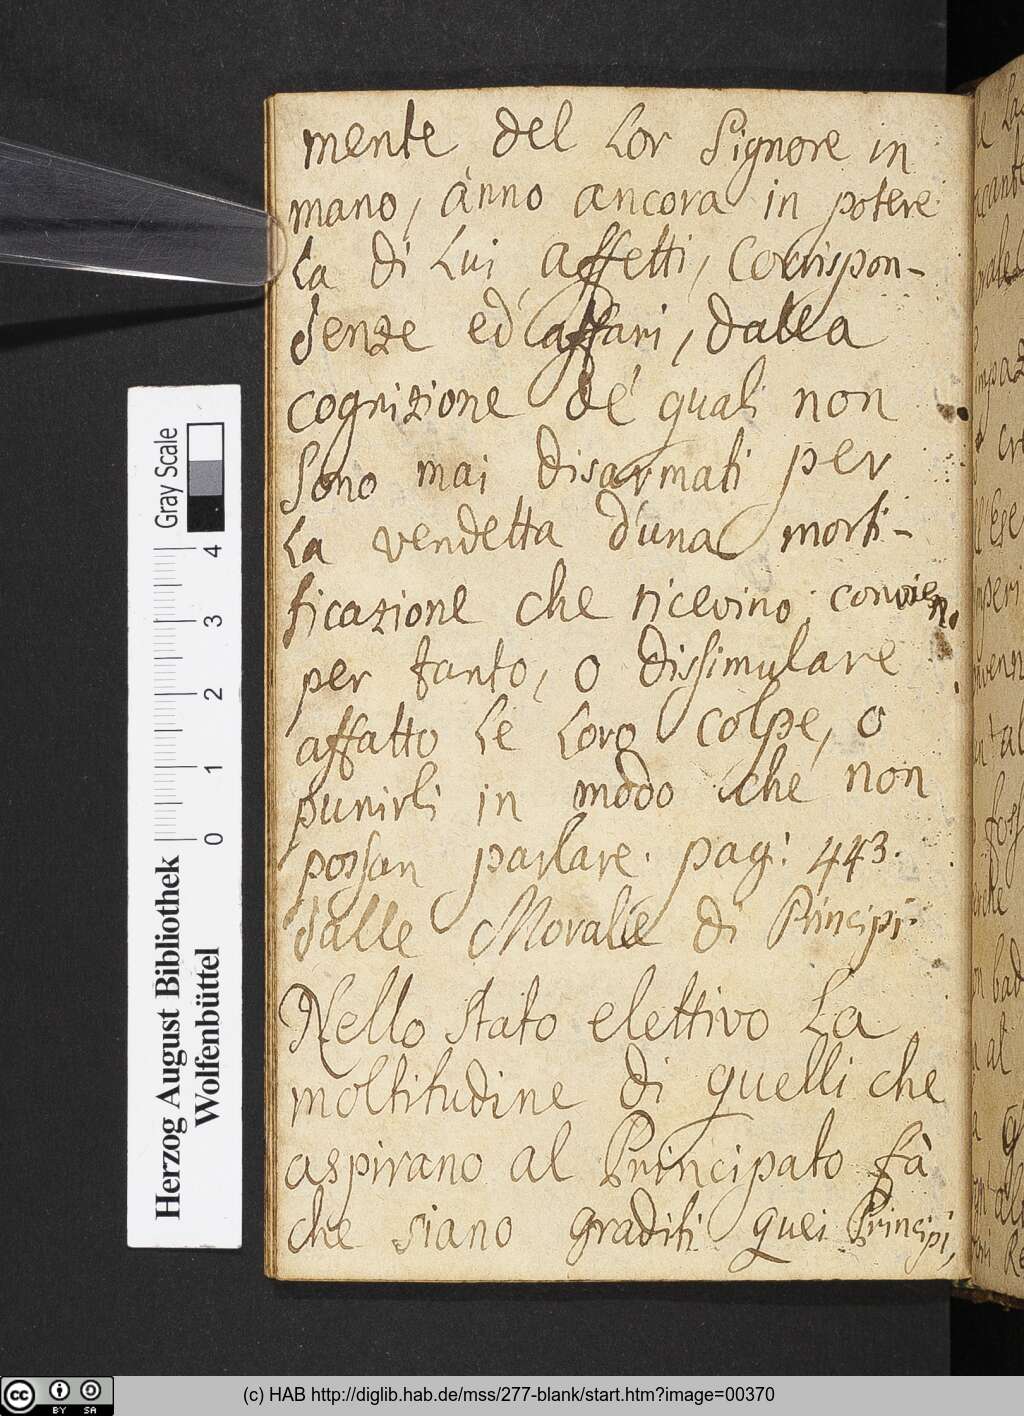 mente del Lor Signore in
mano, ànno ancora in potere
La di Lui affetti, Corrispon-
denze ed affari, dalla
cognizione de' quali non
sono mai disarmati per
La vendetta d'una morti-
ficazione che ricevino; convien.
per tanto, o dissimulare
affatto Le Loro colpe, o
punirli in modo che non
possan parlare. pag: 443.
dalle Morale di Principi.
Nello stato elettivo La
moltitudine di quelli che
aspirano al Principato fà
che siano graditi quei Principi,
Gray Scale
4
3
2
1
0
Herzog August Bibliothek
Wolfenbüttel
cc BY SA
(c) HAB http://diglib.hab.de/mss/277-blank/start.htm?image=00370